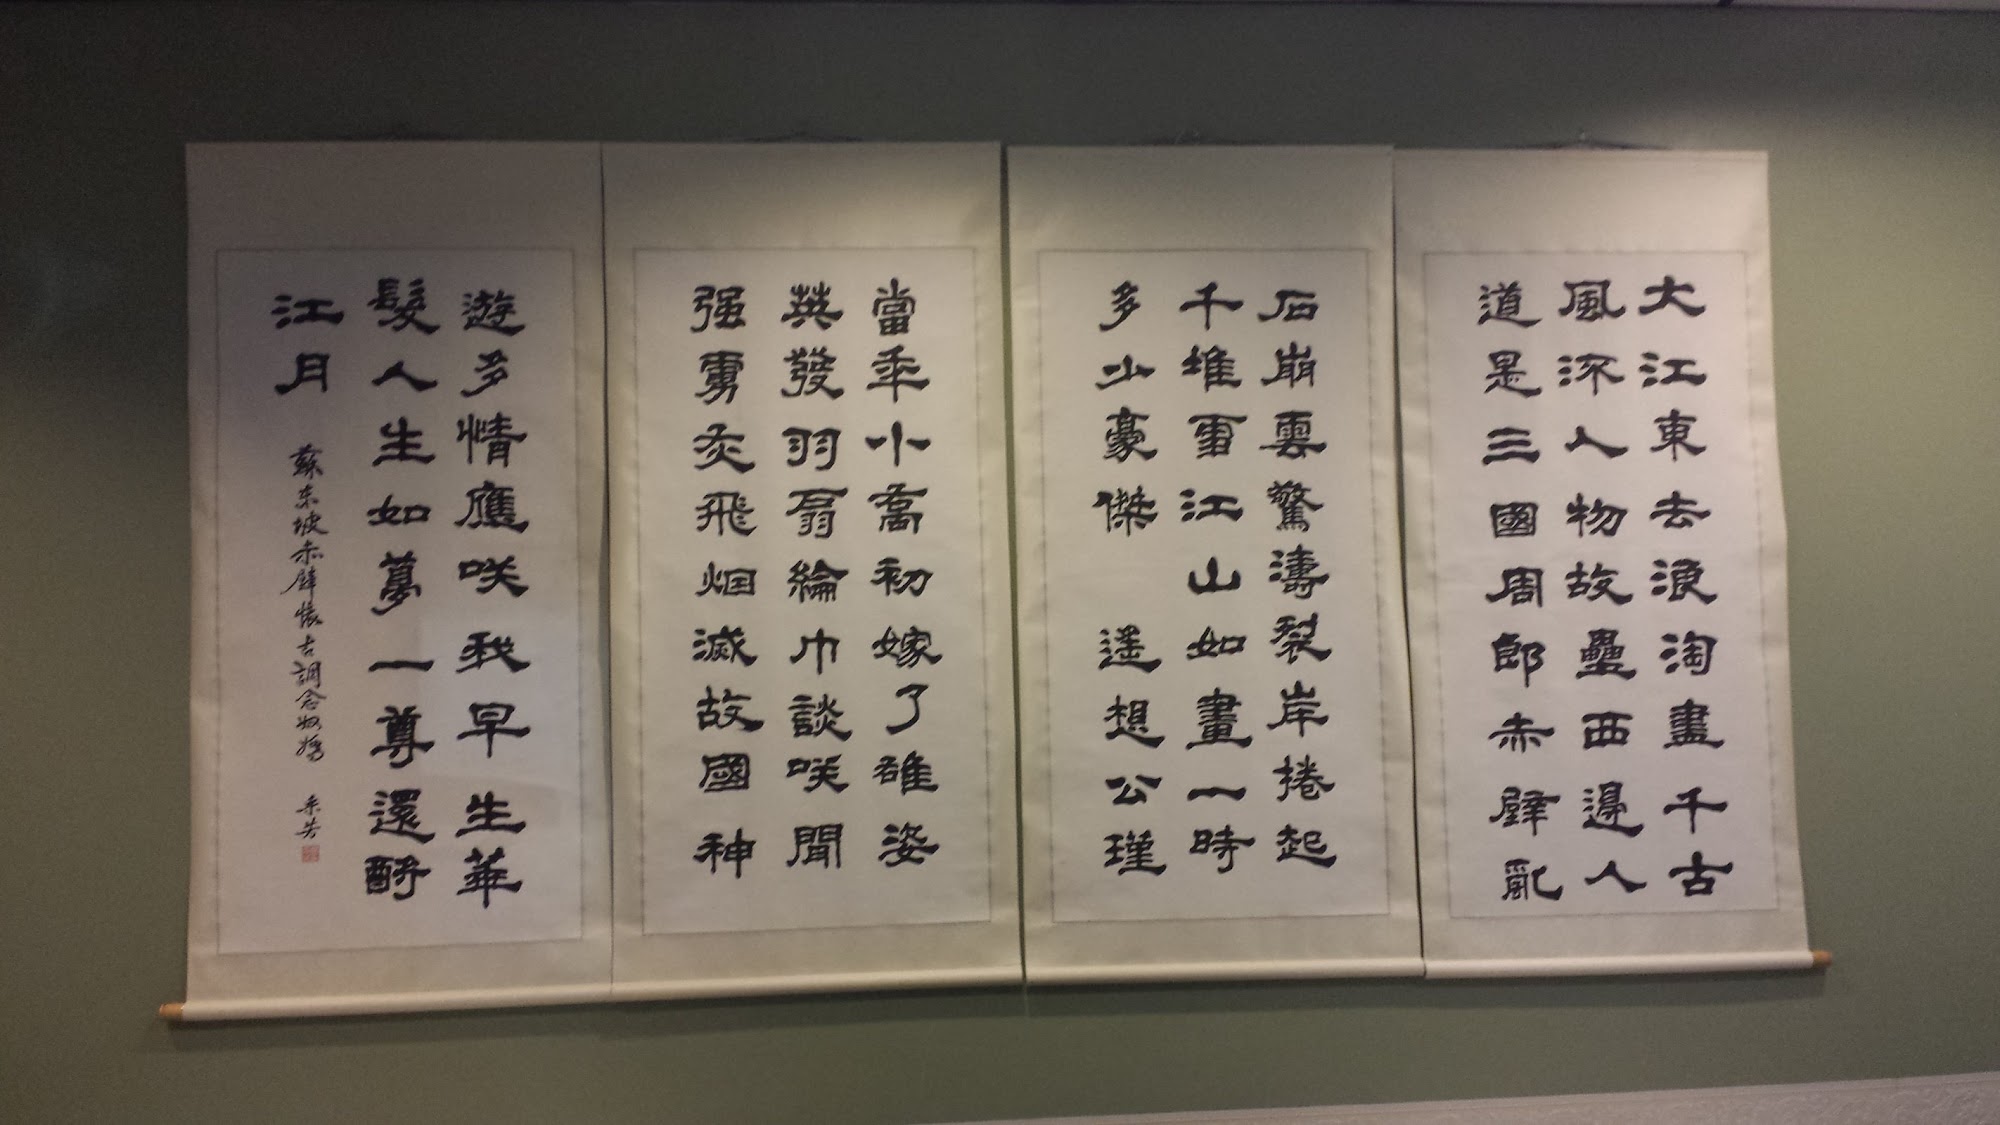 大江東去浪淘盡千古
風流人物故壘西邊人
道是三國周郎赤壁亂
石崩雲驚濤裂岸捲起
千堆雪江山如畫一時
多少豪傑　遙想公瑾
當年小喬初嫁了雄姿
英發羽扇綸巾談咲間
强虜灰飛烟滅故國神
遊多情應咲我早生華
髮人生如夢一尊還酹
江月
蘇東坡赤壁懷古調念奴嬌